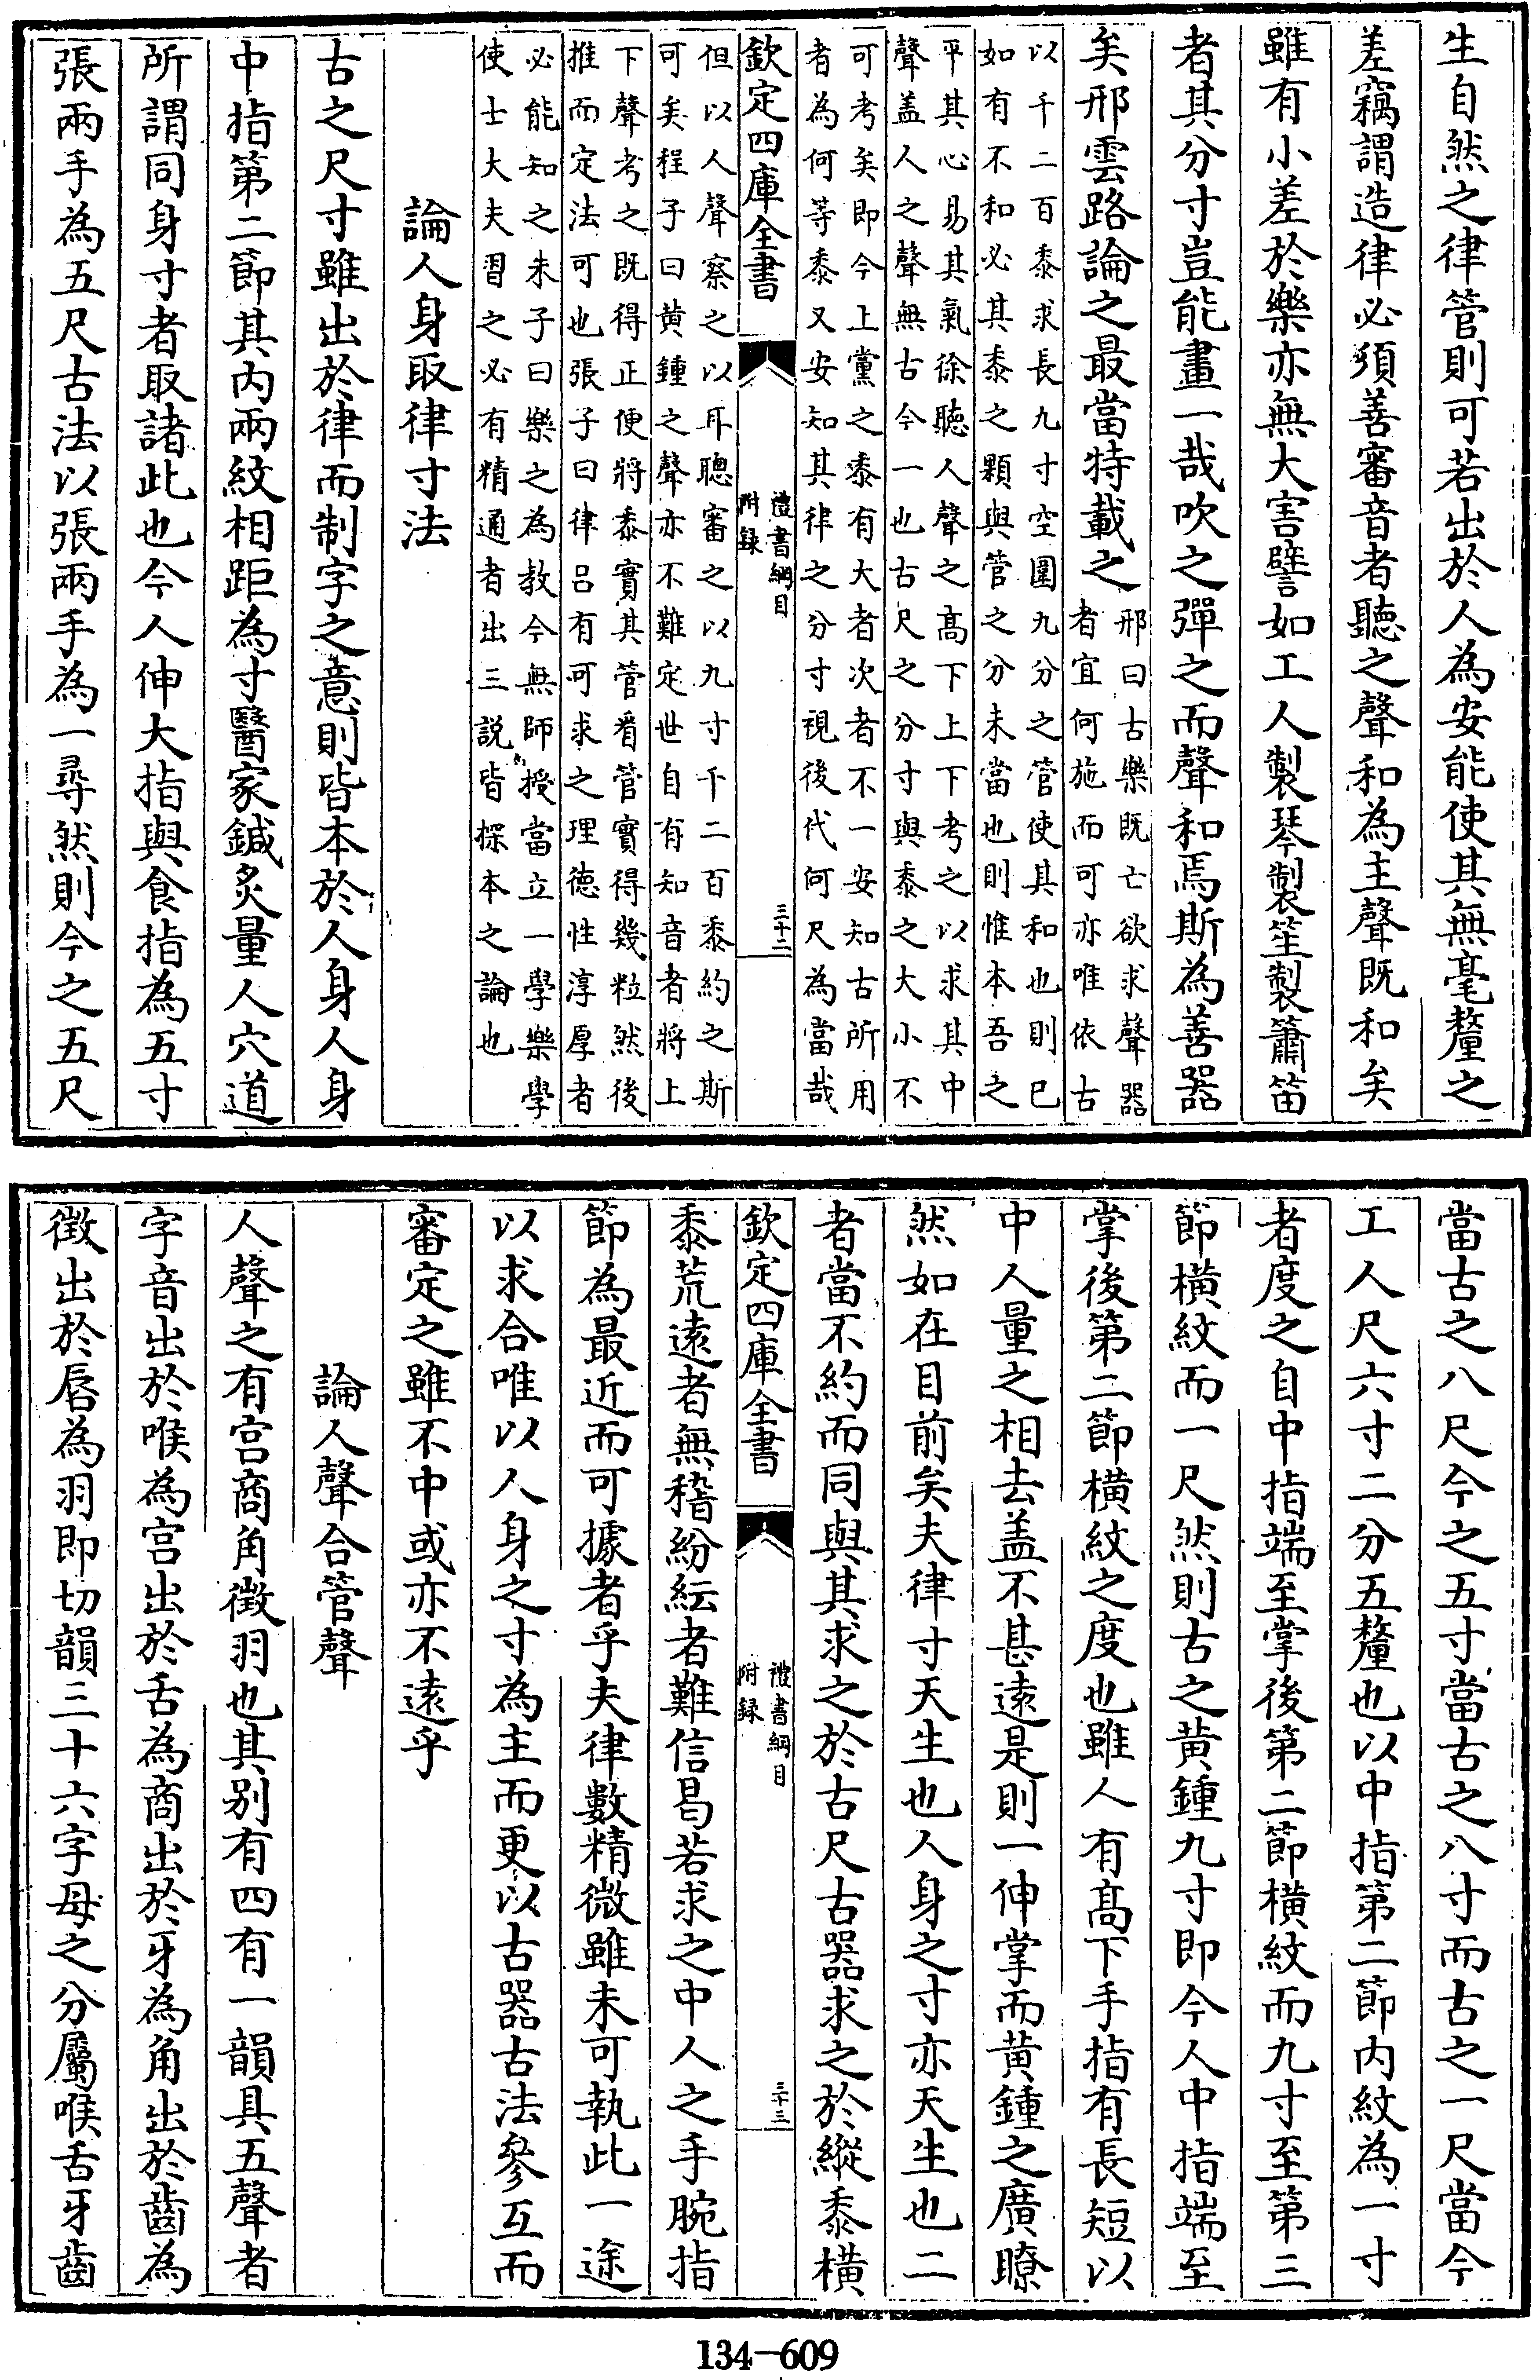 生自然之律管則可若出於人為安能使其無毫釐之
差竊謂造律必須善審音者聽之聲和為主聲既和矣
雖有小差於樂亦無大害譬如工人製琴製笙製簫笛
者其分寸豈能畫一哉吹之彈之而聲和焉斯為善器
矣邢雲路論之最當特載之
邢曰古樂既亡欲求聲器
者宜何施而可亦唯依古
以千二百黍求長九寸空圍九分之管使其和也則已
如有不和必其黍之顆與管之分未當也則惟本吾之
平其心易其氣徐聽人聲之高下上下考之以求其中
聲盖人之聲無古今一也古尺之分寸與黍之大小不
可考矣即今上黨之黍有大者次者不一安知古所用
者為何等黍又安知其律之分寸視後代何尺為當哉
欽定四庫全書
禮書綱目
附録
三十二
但以人聲察之以耳聰審之以九寸千二百黍約之斯
可矣程子曰黄鍾之聲亦不難定世自有知音者將上
下聲考之既得正便將黍實其管看管實得幾粒然後
推而定法可也張子曰律呂有可求之理德性淳厚者
必能知之朱子曰樂之為教今無師授當立一學樂學
使士大夫習之必有精通者出三説皆探本之論也
論人身取律寸法
古之尺寸雖出於律而制字之意則皆本於人身人身
中指第二節其内兩紋相距為寸醫家鍼炙量人穴道
所謂同身寸者取諸此也今人伸大指與食指為五寸
張兩手為五尺古法以張兩手為一尋然則今之五尺
當古之八尺今之五寸當古之八寸而古之一尺當今
工人尺六寸二分五釐也以中指第二節内紋為一寸
者度之自中指端至掌後第二節橫紋而九寸至第三
節橫紋而一尺然則古之黄鍾九寸即今人中指端至
掌後第二節橫紋之度也雖人有髙下手指有長短以
中人量之相去盖不甚遠是則一伸掌而黄鍾之廣瞭
然如在目前矣夫律寸天生也人身之寸亦天生也二
者當不約而同與其求之於古尺古器求之於縱黍橫
欽定四庫全書
禮書綱目
附録
三十三
黍荒遠者無稽紛紜者難信曷若求之中人之手腕指
節為最近而可據者乎夫律數精微雖未可執此一途
以求合唯以人身之寸為主而更以古器古法參互而
審定之雖不中或亦不遠乎
論人聲合管聲
人聲之有宫商角徵羽也其别有四有一韻具五聲者
字音出於喉為宫出於舌為商出於牙為角出於齒為
徵出於唇為羽即切韻三十六字母之分屬喉舌牙齒
134-609